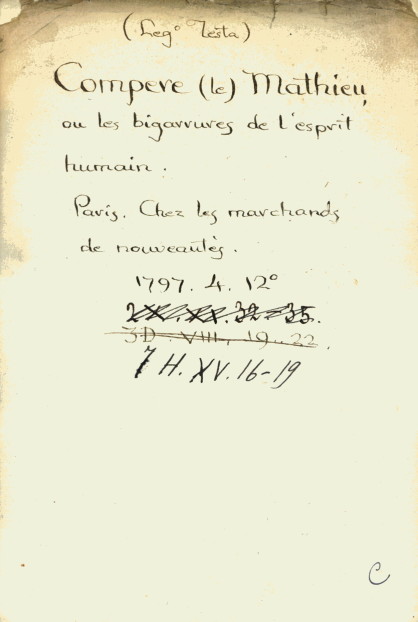 (Leg° Testa)
Compere (le) Mathieu,
ou les bigarrures de l'esprit
humain.
Paris. Chez les marchands
de nouveautés.
1797. 4. 12°
32-35.
3D. VIII, 19..22.
7 H. XV. 16-19
C